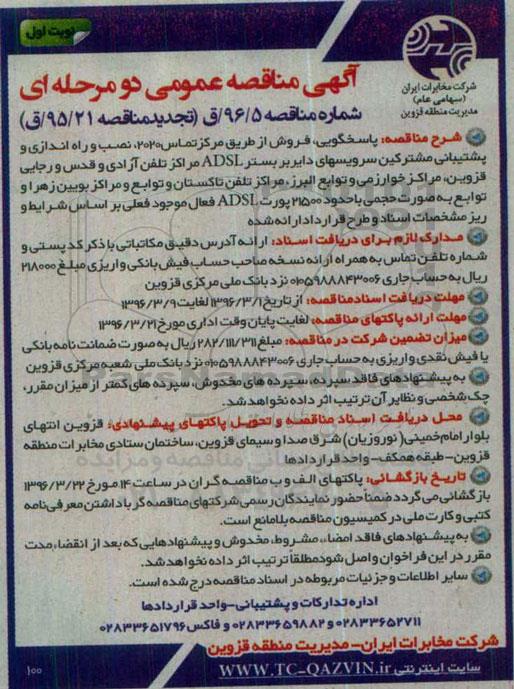 نوبت اول
شرکت مخابرات ایران
(سهامی عام)
مدیریت منطقه قزوین
آگهی مناقصه عمومی دو مرحله ای
شماره مناقصه ۹۶/۵/ق (تجدیدمناقصه ۹۵/۲۱/ق)
شرح مناقصه: پاسخگویی، فروش از طریق مرکزتماس۲۰۲۰، نصب و راه اندازی و
پشتیبانی مشترکین سرویسهای دایر بر بستر ADSL مراکز تلفن آزادی و قدس و رجایی
قزوین، مراکز خوارزمی و توابع البرز، مراکز تلفن تاکستان و توابع و مراکز بویین زهرا و
توابع به صورت حجمی باحدود ۲۱۵۰۰ پورت ADSL فعال موجود فعلی بر اساس شرایط و
ریز مشخصات اسناد و طرح قرارداد ارائه شده
مدارک لازم برای دریافت اسناد: ارائه آدرس دقیق مکاتباتی با ذکر کد پستی و
شماره تلفن تماس به همراه ارائه نسخه صاحب حساب فیش بانکی واریزی مبلغ ۲۱۸۰۰۰
ریال به حساب جاری ۰۱۰۵۹۸۸۸۴۳۰۰۶ نزد بانک ملی مرکزی قزوین
مهلت دریافت اسناد مناقصه: از تاریخ ۱۳۹۶/۳/۱ لغایت ۱۳۹۶/۳/۹
مهلت ارائه پاکتهای مناقصه: لغایت پایان وقت اداری مورخ ۱۳۹۶/۳/۲۱
میزان تضمین شرکت در مناقصه: مبلغ ۲۸۲/۱۱۱/۳۱۱ ریال به صورت ضمانت نامه بانکی
یا فیش نقدی واریزی به حساب جاری ۰۱۰۵۹۸۸۸۴۳۰۰۶ نزد بانک ملی شعبه مرکزی قزوین
به پیشنهادهای فاقد سپرده، سپرده های مخدوش، سپرده های کمتر از میزان مقرر،
چک شخصی و نظایر آن ترتیب اثر داده نخواهد شد.
محل دریافت اسناد مناقصه و تحویل پاکتهای پیشنهادی: قزوین انتهای
بلوار امام خمینی( نوروزیان) شرق صدا و سیمای قزوین، ساختمان ستادی مخابرات منطقه
قزوین-طبقه همکف- واحد قراردادها
تاریخ بازگشائی: پاکتهای الف و ب مناقصه گران در ساعت ۱۴ مورخ ۱۳۹۶/۳/۲۲
بازگشائی می گردد ضمناً حضور نمایندگان رسمی شرکتهای مناقصه گر با داشتن معرفی نامه
کتبی و کارت ملی در کمیسیون مناقصه بلامانع است.
به پیشنهادهای فاقد امضاء، مشروط، مخدوش و پیشنهادهایی که بعد از انقضاء مدت
مقرر در این فراخوان واصل شود مطلقاً ترتیب اثر داده نخواهد شد.
سایر اطلاعات و جزئیات مربوطه در اسناد مناقصه درج شده است.
اداره تدارکات و پشتیبانی-واحد قراردادها
۰۲۸۳۳۶۵۲۷۱۱ و ۰۲۸۳۳۶۵۹۸۸۲ و فاکس ۰۲۸۳۳۶۵۱۷۹۶
شرکت مخابرات ایران- مدیریت منطقه قزوین
سایت اینترنتی WWW.TC-QAZVIN.ir
۱۰۰